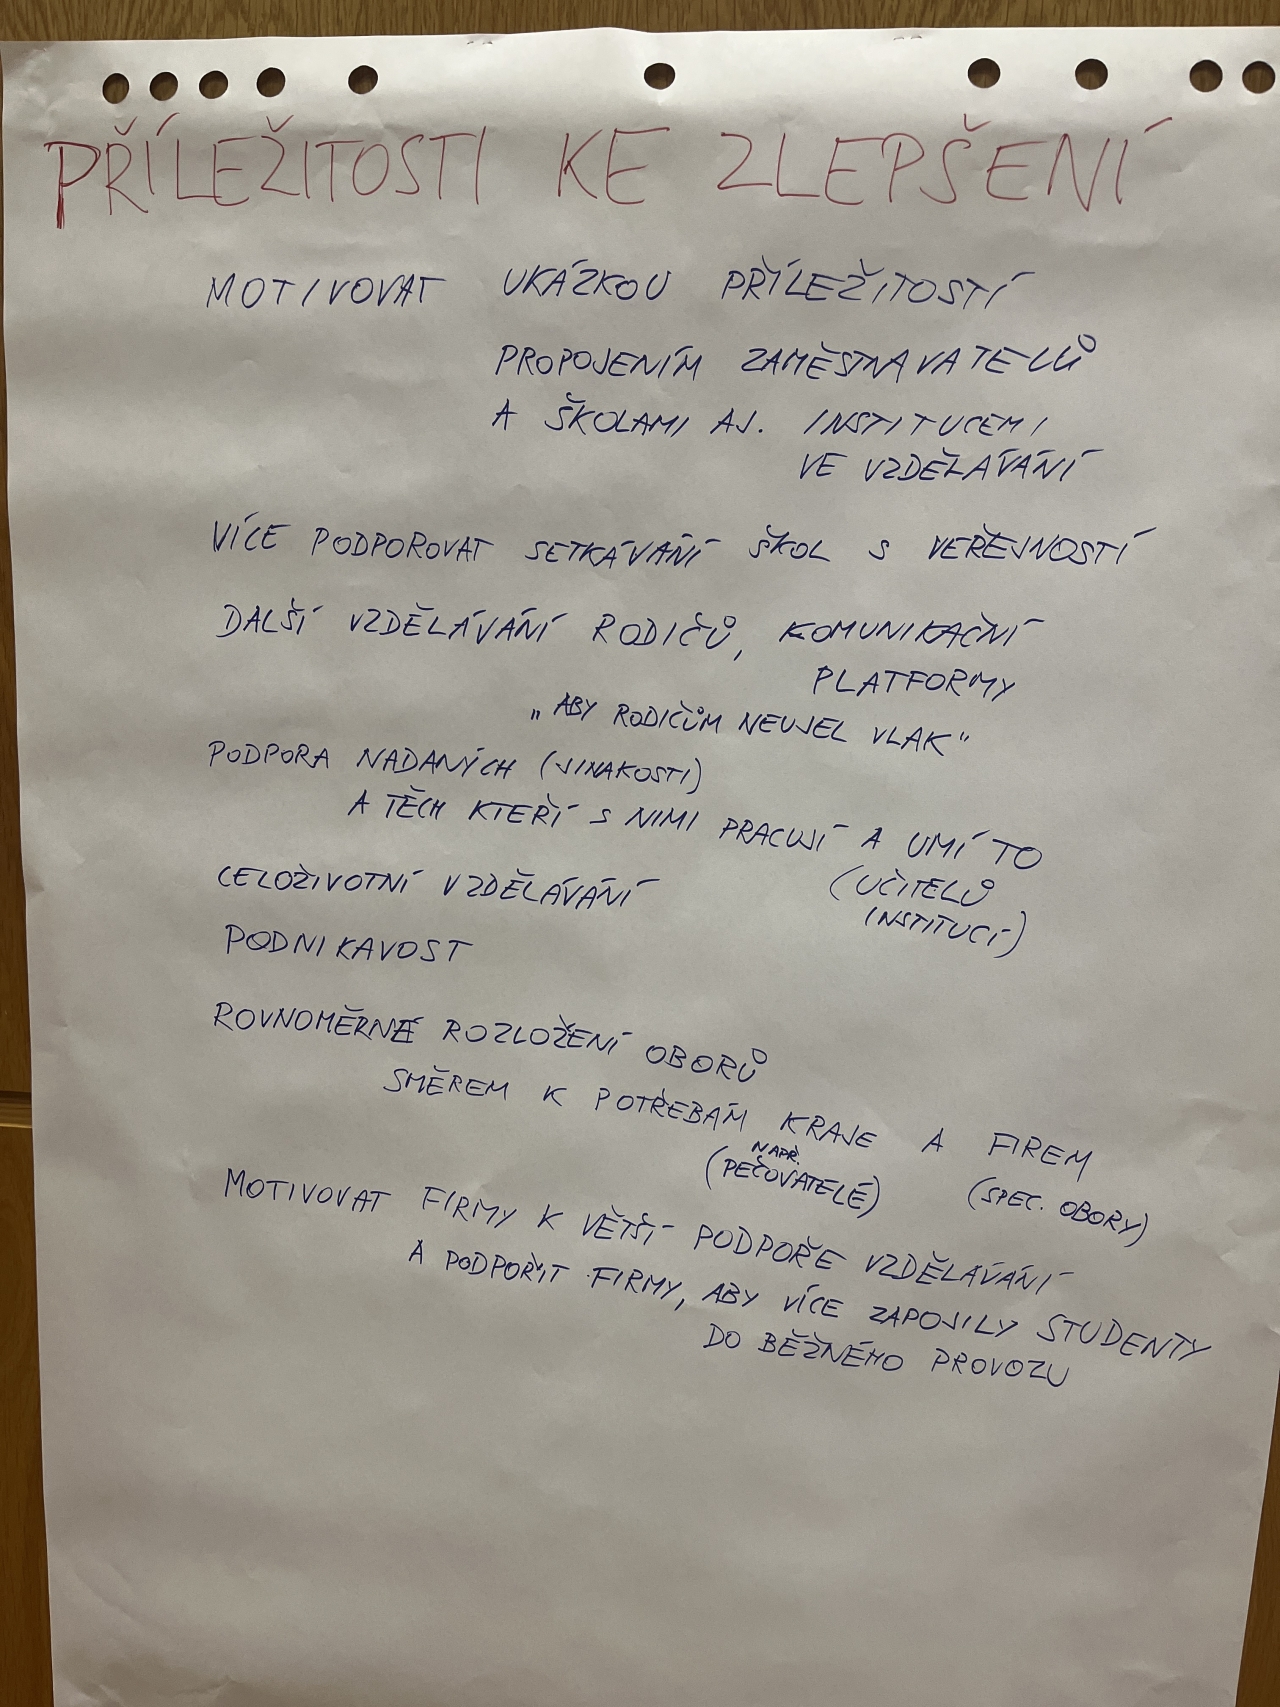 PŘÍLEŽITOSTI KE ZLEPŠENÍ
MOTIVOVAT UKÁZKOU PŘÍLEŽITOSTÍ
PROPOJENÍM ZAMĚSTNAVATELŮ
A ŠKOLAMI AJ. INSTITUCEMI
VE VZDĚLÁVÁNÍ
VÍCE PODPOROVAT SETKÁVÁNÍ ŠKOL S VEŘEJNOSTÍ
DALŠÍ VZDĚLÁVÁNÍ RODIČŮ, KOMUNIKAČNÍ
PLATFORMY
„ABY RODIČŮM NEUJEL VLAK"
PODPORA NADANÝCH (JINAKOSTI)
A TĚCH KTEŘÍ S NIMI PRACUJÍ A UMÍ TO
(UČITELŮ
INSTITUCÍ)
CELOŽIVOTNÍ VZDĚLÁVÁNÍ
PODNIKAVOST
ROVNOMĚRNÉ ROZLOŽENÍ OBORŮ
SMĚREM K POTŘEBÁM KRAJE A FIREM
NAPŘ.
(PEČOVATELÉ) (SPEC. OBORY)
MOTIVOVAT FIRMY K VĚTŠÍ PODPOŘE VZDĚLÁVÁNÍ
A PODPOŘIT FIRMY, ABY VÍCE ZAPOJILY STUDENTY
DO BĚŽNÉHO PROVOZU